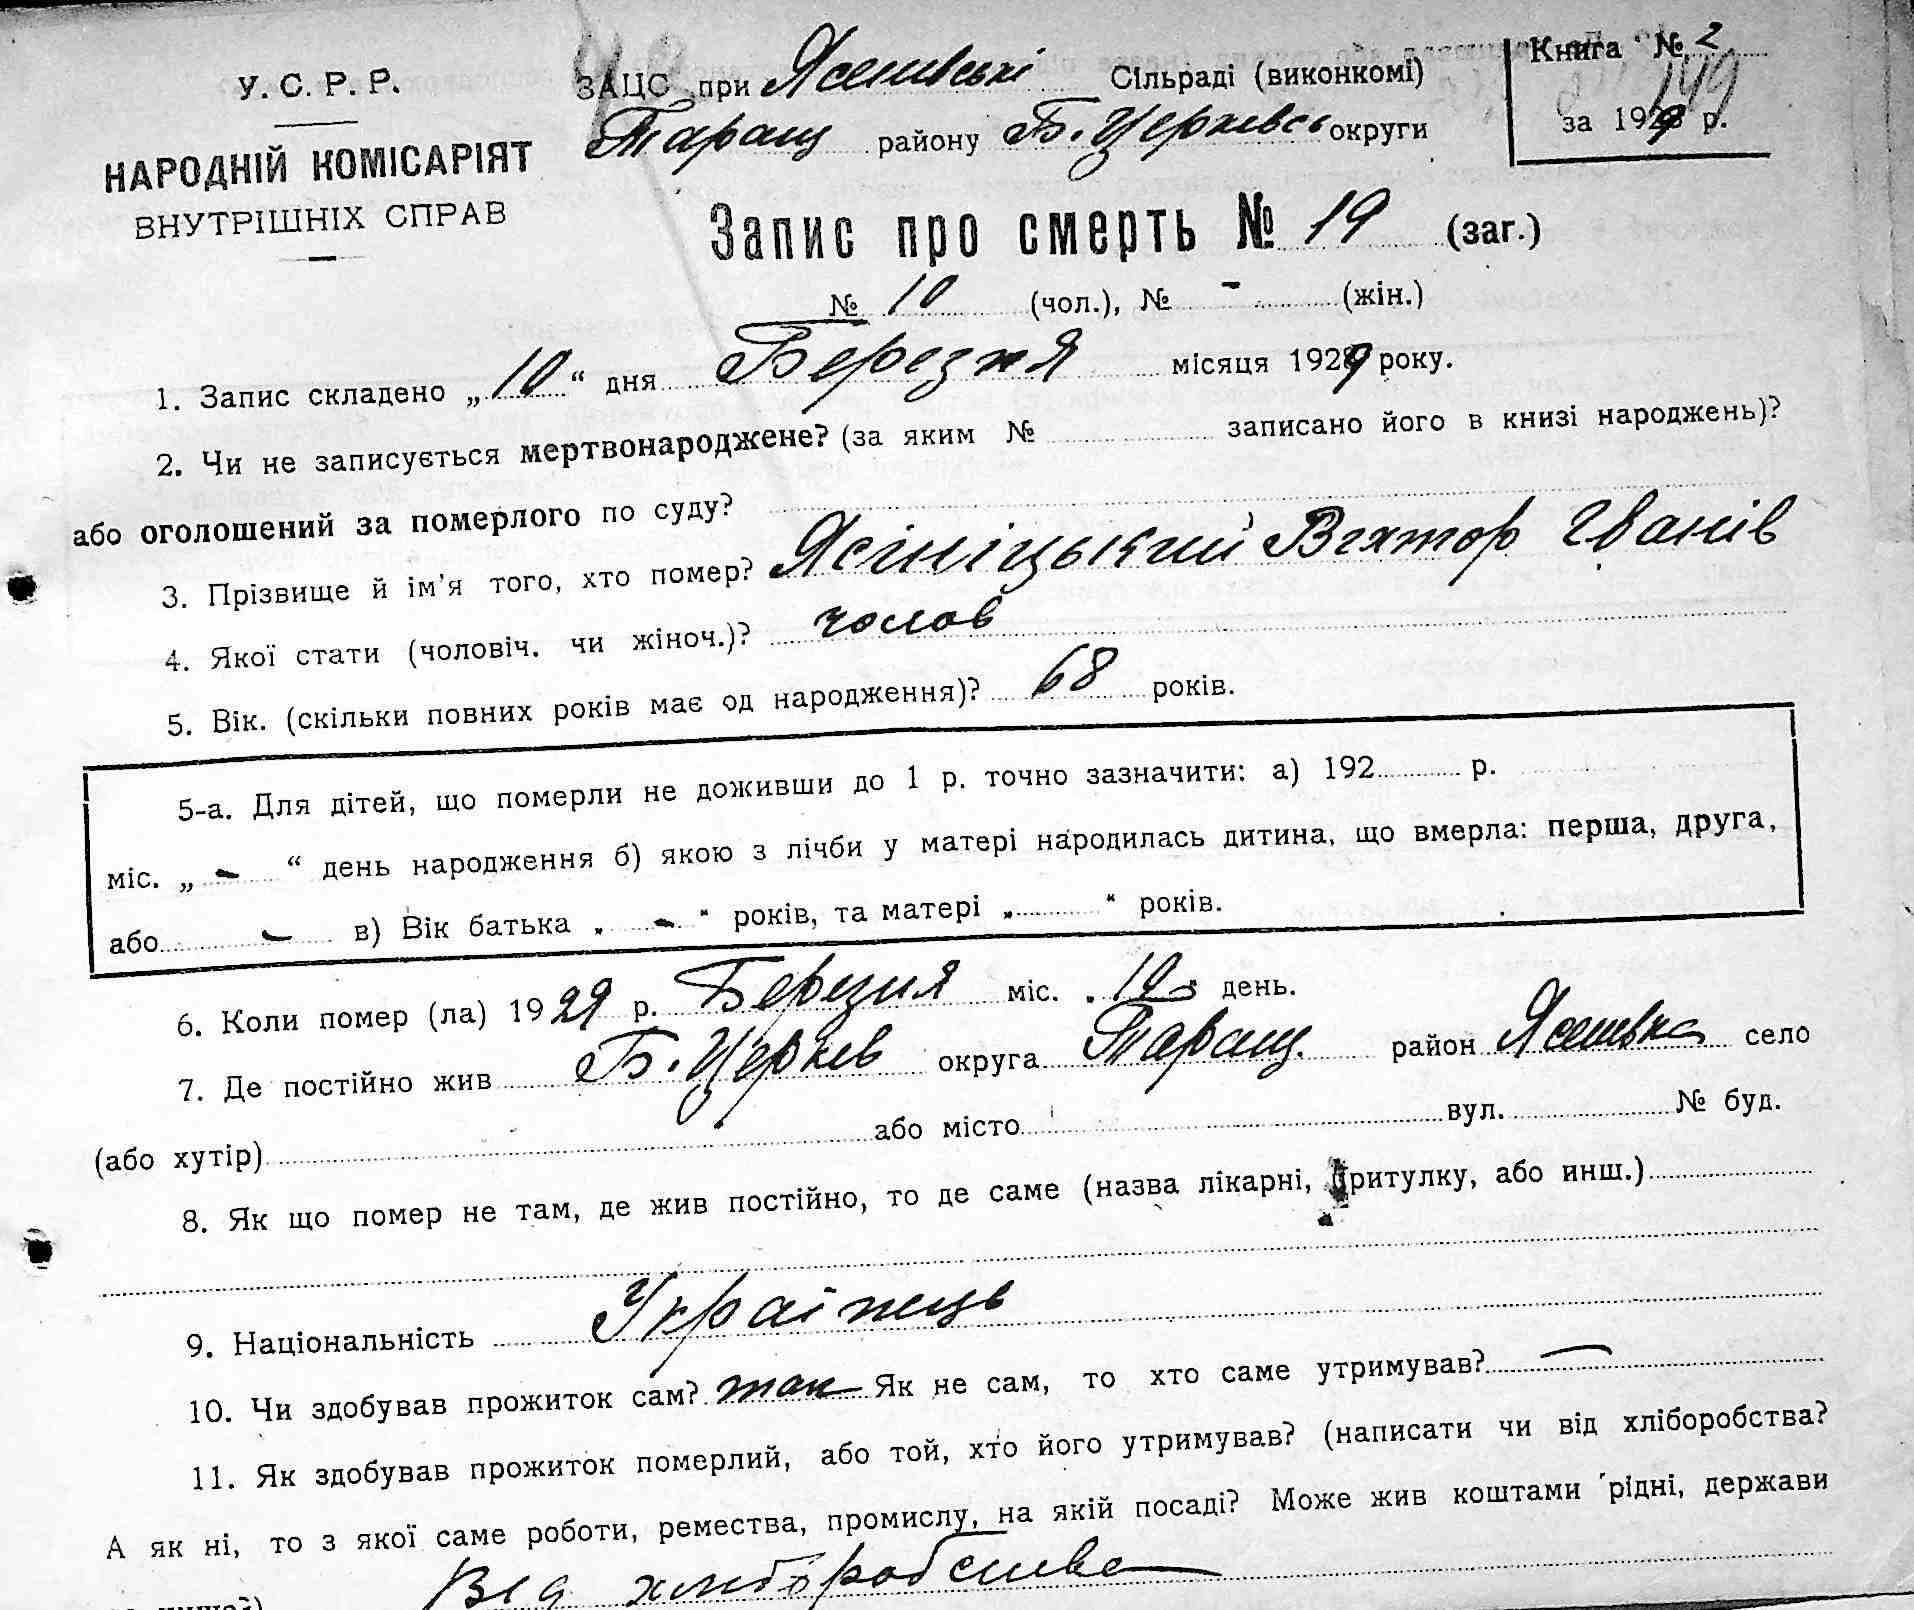 У. С. Р. Р.
НАРОДНІЙ КОМІСАРІЯТ
ВНУТРІШНІХ СПРАВ
ЗАЦС при Ясенівські Сільраді (виконкомі)
Таращ району Б. Церківсь округи
Книга № 2
за 1929 р.
149
Запис про смерть № 19 (заг.)
№ 10 (чол.), № - (жін.)
1. Запис складено „ 10 “ дня Березня місяця 1929 року.
2. Чи не записується мертвонароджене? (за яким № записано його в книзі народжень)?
або оголошений за померлого по суду?
3. Прізвище й ім'я того, хто помер? Ясініцький Віктор Іванів
4. Якої стати (чоловіч. чи жіноч.)? чолов
5. Вік. (скільки повних років має од народження)? 68 років.
5-а. Для дітей, що померли не доживши до 1 р. точно зазначити: а) 192 р.
міс. „ - “ день народження б) якою з лічби у матері народилась дитина, що вмерла: перша, друга,
або - в) Вік батька „ - “ років, та матері „ “ років.
6. Коли помер (ла) 1929 р. Березня міс. „ 10 “ день.
7. Де постійно жив Б. Церків округа Таращ. район Ясенівка село
(або хутір) або місто вул. № буд.
8. Як що помер не там, де жив постійно, то де саме (назва лікарні, притулку, або инш.)
9. Національність Українець
10. Чи здобував прожиток сам? так Як не сам, то хто саме утримував? —
11. Як здобував прожиток померлий, або той, хто його утримував? (написати чи від хліборобства?
А як ні, то з якої саме роботи, ремества, промислу, на якій посаді? Може жив коштами рідні, держави
Від хліборобства